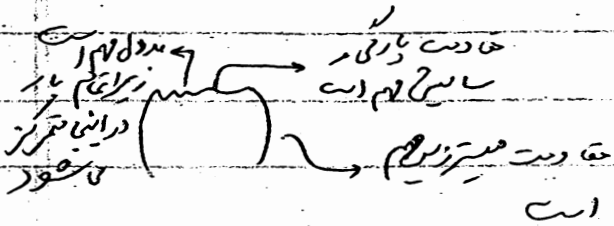 مدول مهم است
زیرا تمام بار
در اینجا متمرکز
می شود
مقاومت پارگی و
سایش مهم است
مقاومت هیسترزیس مهم
است